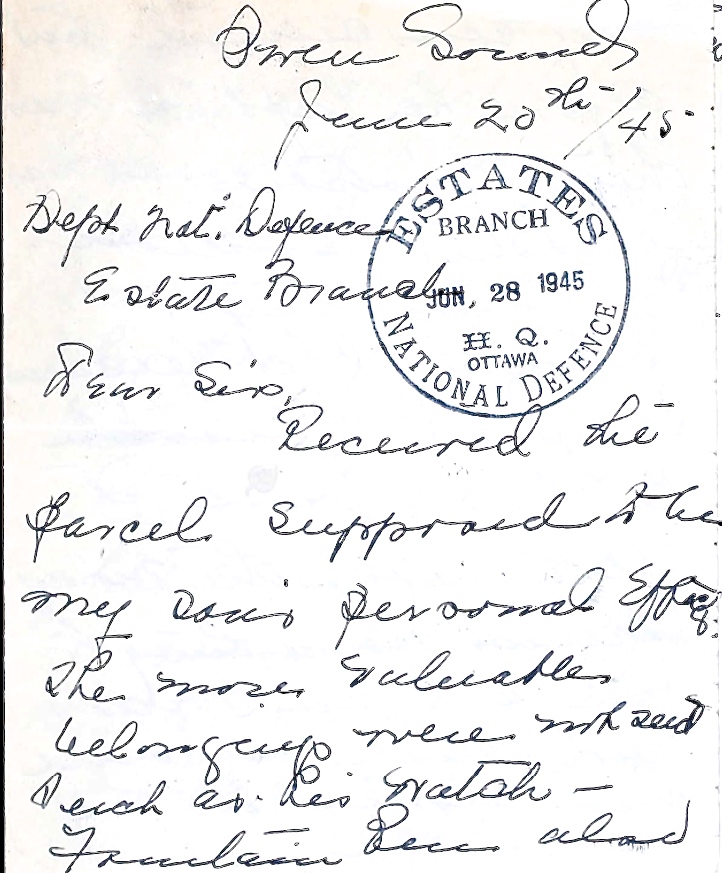 Owen Sound
June 20th/45
Dept Nat. Defence
Estate Branch
ESTATES
BRANCH
JUN, 28 1945
H. Q.
OTTAWA
NATIONAL DEFENCE
Dear Sir,
Received the
parcel supposed to be
my son's personal Effects.
The more valuable
belongings were not sent
such as his watch –
Fountain Pen also